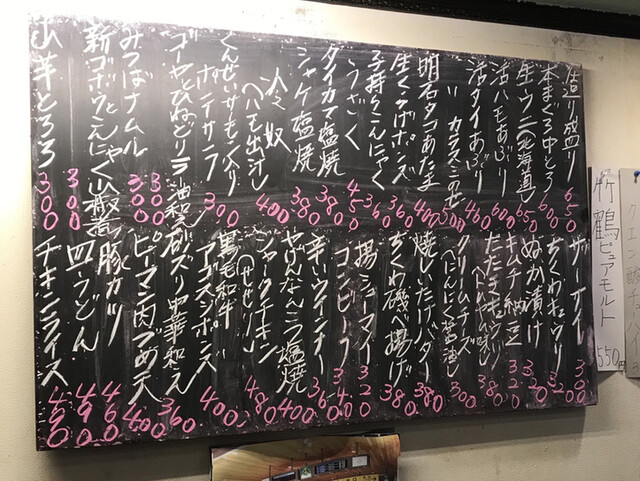 造り盛り 650
本まぐろ中とろ 650
生ウニ(北海道) 600
活ハモあぶり 600
活タイあぶり 460
〃 カラスミのせ 500
明石タコあたま 400
生くらげポンズ 360
子持ちこんにゃく 360
うざく 450
ダイカマ塩焼 380
シャケ塩焼 380
冷奴
〃ハモ出汁し 400
くんせいサーモン入り
ポテトサラダ 300
ゴーヤとひねどり
みつばナムル 300
新ゴボウとこんにゃく
山芋とろろ 300
ザーサイ 300
ちくわキュウリ 320
ぬか漬け
キムチ納豆 320
たたきキュウリ
クリームチーズ
焼しいたけバター
ちくわ磯べ揚げ 380
揚シューマイ 320
コンビーフ 340
辛いウインナー 360
やげんなんこつ塩焼 400
シャークチキン 480
黒毛和牛
アゴスジポンズ 400
砂ズリ中華和え 360
ピーマン肉づめ天 400
豚カツ 460
皿うどん 490
チキンライス 480
竹鶴ピュアモルト 550円